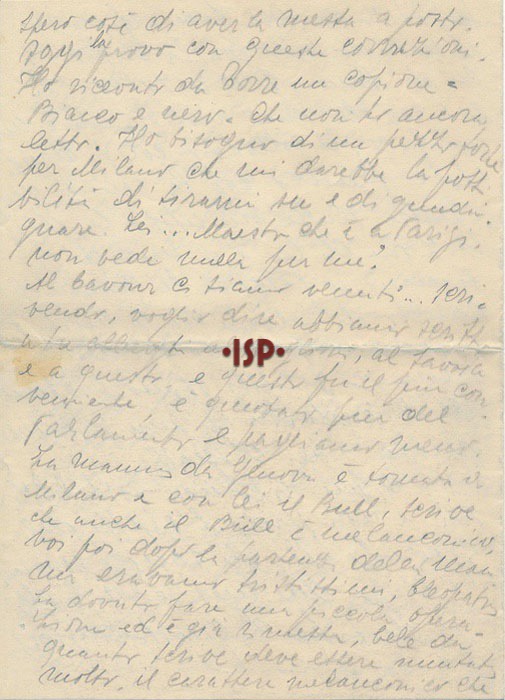 spero così di averla messa a posto.
Oggi la provo con queste correzioni.
Ho ricevuto da Torre un copione =
Bianco e nero = che non ho ancora
letto. Ho bisogno di un pezzo forte
per Milano che mi darebbe la possi
bilità di tirarmi su e di guada
gnare. Lei ... Maestro che è a Parigi,
non vede nulla per me?
Al Cavour ci siamo venuti ... scri-
vendo, voglio dire abbiamo scritto
a tre alberghi al Savoia
·ISP·
e a questo, e questo fu il più con-
veniente, è quotato più del
Parlamento e paghiamo meno.
La mamma da Genova è tornata a
Milano e con lei il Bull, scrive
che anche il Bull è melanconico,
noi poi dopo la partenza della mam
ma eravamo tristissimi,
ha dovuto fare una piccola opera-
zione ed è già rimessa, bele da
quanto scrive deve essere mutata
molto, il carattere melanconico che